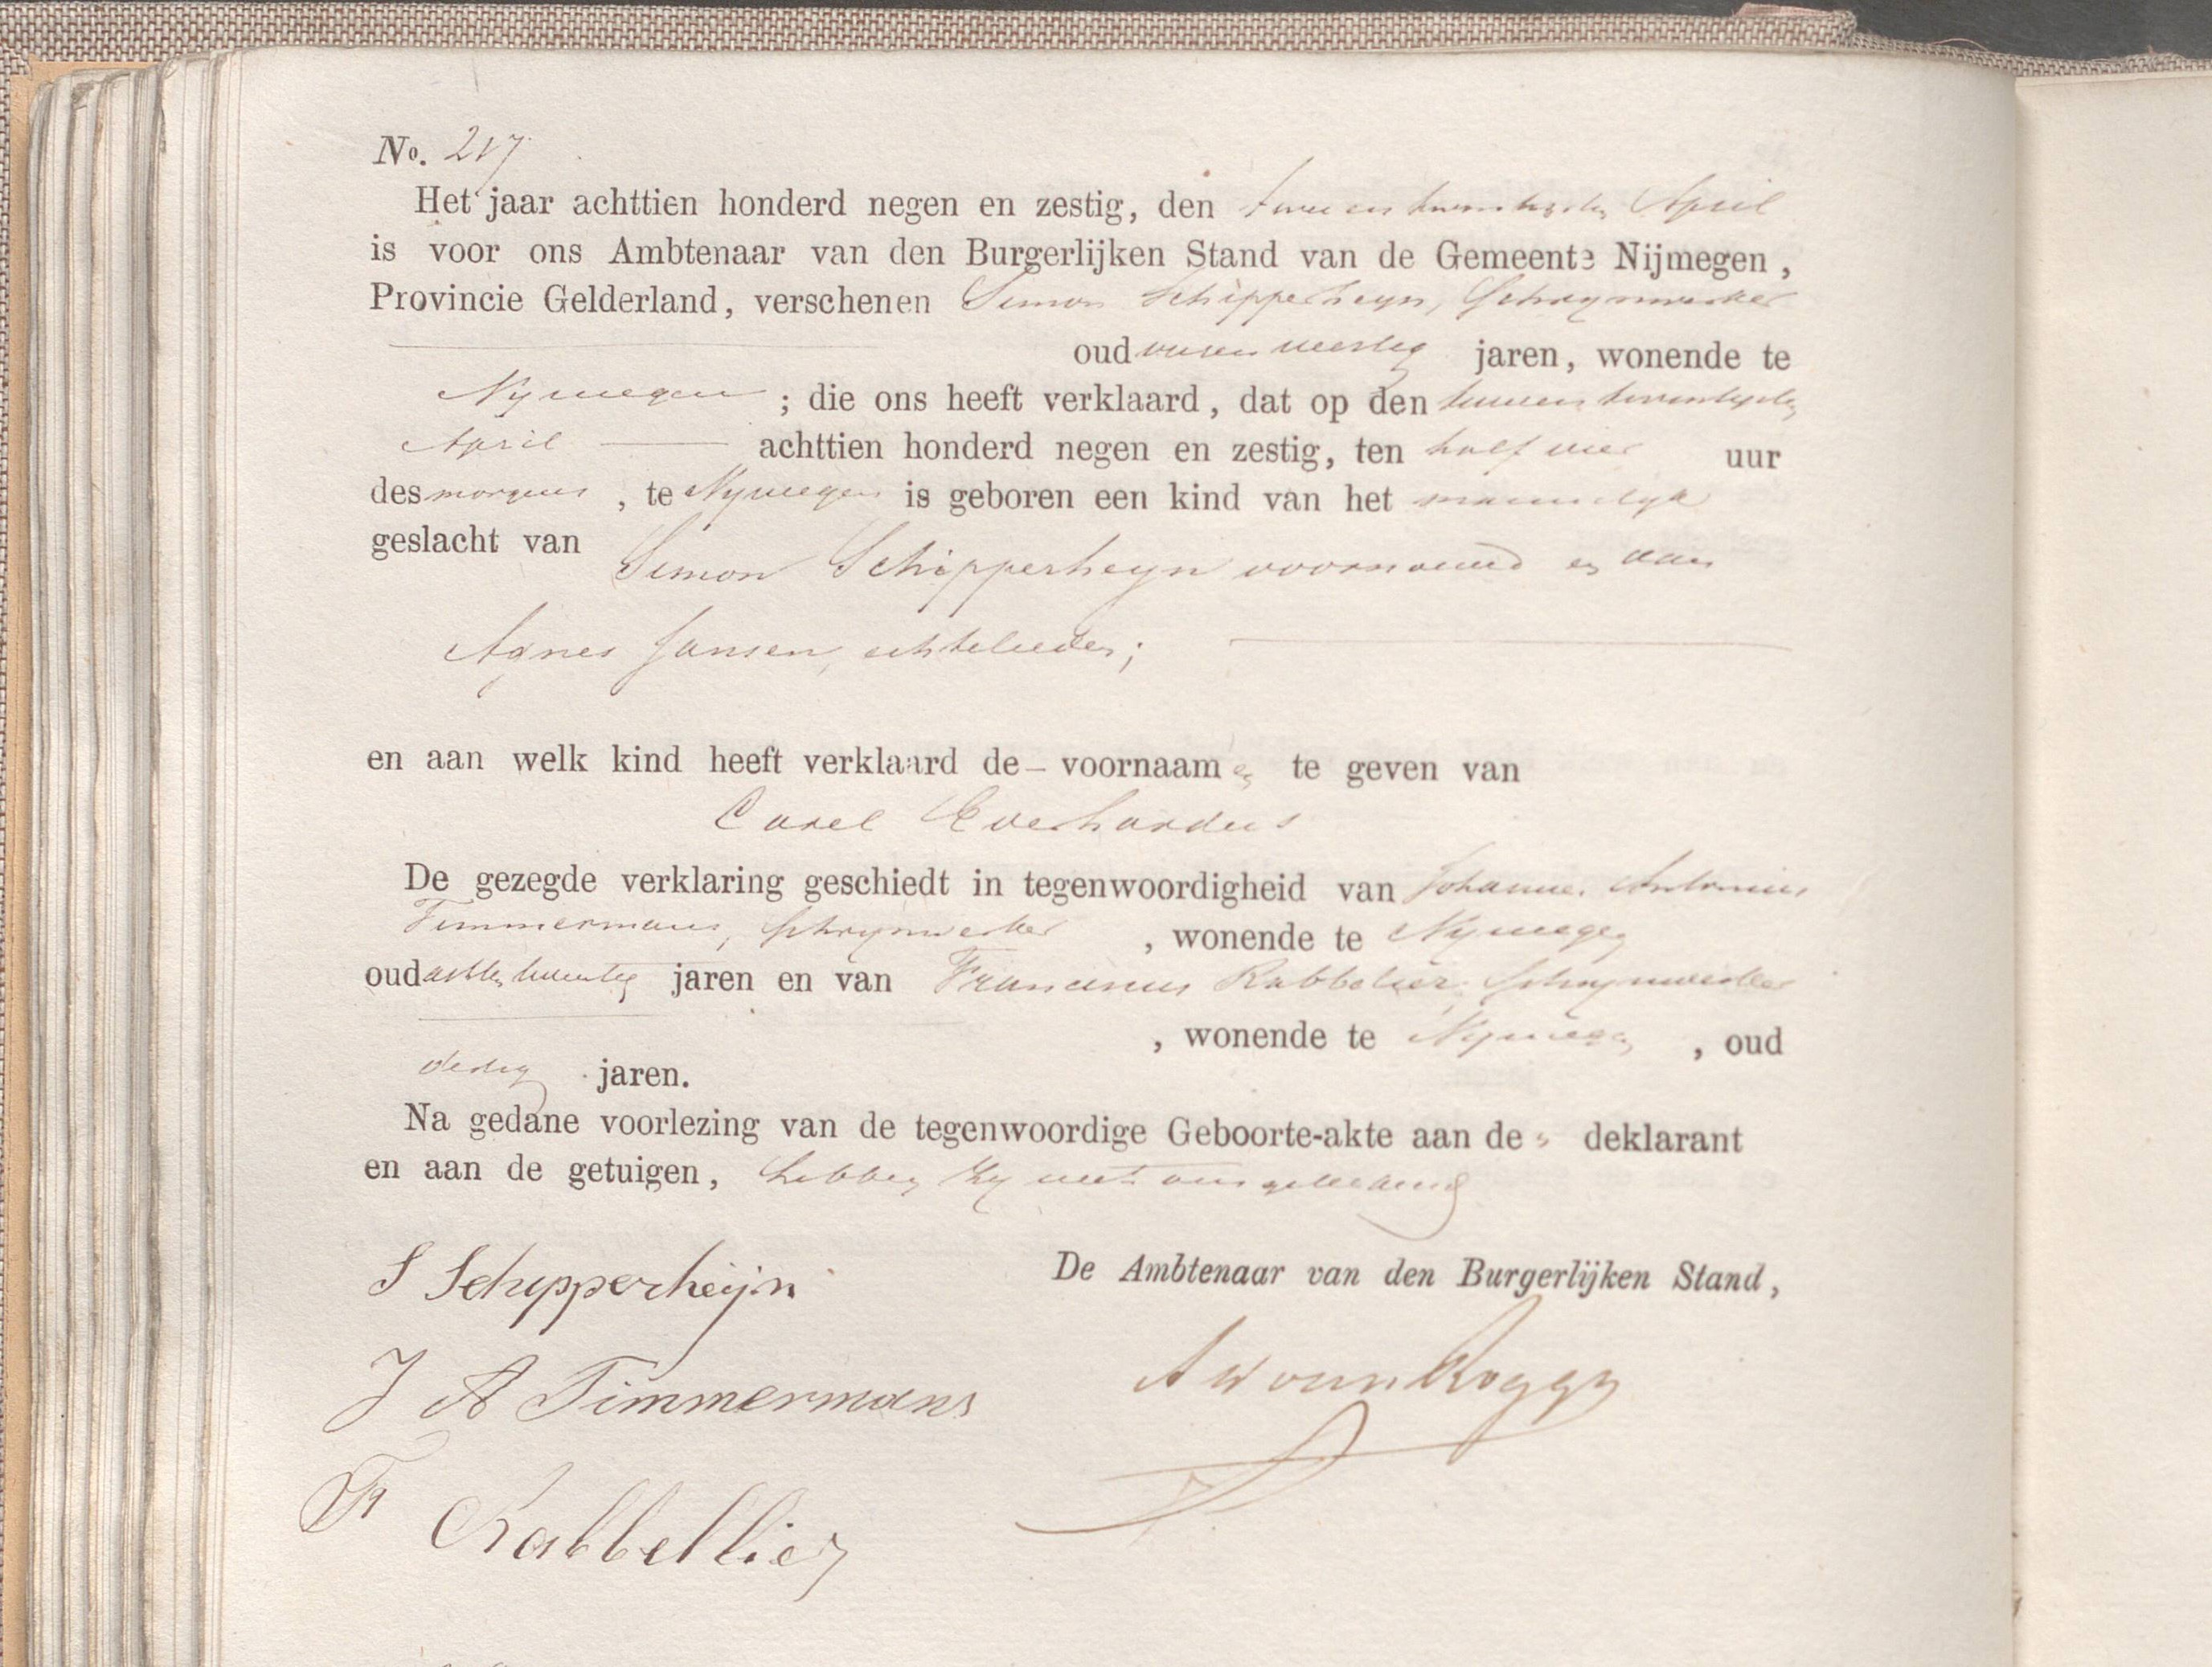 No. 217
Het jaar achttien honderd negen en zestig, den twee en twintigsten April
is voor ons Ambtenaar van den Burgerlijken Stand van de Gemeente Nijmegen,
Provincie Gelderland, verschenen Simon Schipperheyn, Schrynwerker
oud jaren, wonende te
Nymegen ; die ons heeft verklaard, dat op den twee en twintigsten
April achttien honderd negen en zestig, ten half vier uur
des morgens, te Nymegen is geboren een kind van het mannelyk
geslacht van Simon Schipperheyn voornoemd en van
Agnes Jansen, echtelieden;
en aan welk kind heeft verklaard de - voornaamen te geven van
Carel Everhardus
De gezegde verklaring geschiedt in tegenwoordigheid van Johannes Antonius
Timmermans, Schrynwerker, wonende te Nymegen
oud acht en twintig jaren en van Franciscus Rabbelier, Schrynwerker
, wonende te Nymegen, oud
dertig jaren.
Na gedane voorlezing van de tegenwoordige Geboorte-akte aan den deklarant
en aan de getuigen, hebben zy met ons geteekend
S Schipperheijn
De Ambtenaar van den Burgerlijken Stand,
J A Timmermans
F Rabbellier